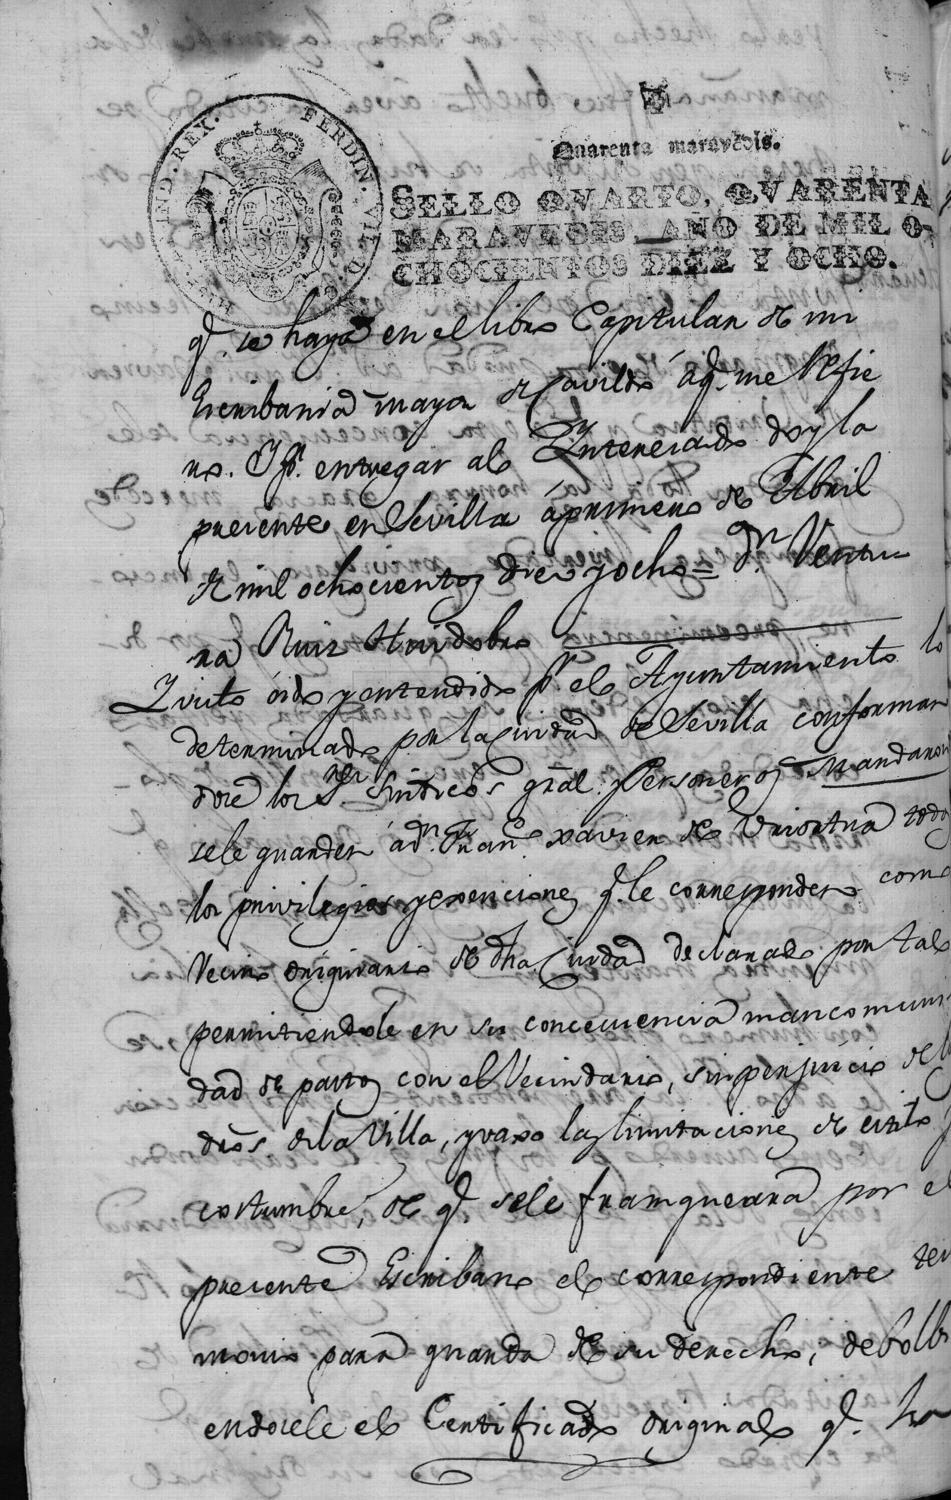 Quarenta maravedis.
SELLO QVARTO, QVARENTA
MARAVEDIS, AÑO DE MIL O-
CHOCIENTOS DIEZ Y OCHO.
HISP. ET IND. REX. FERDIN. VII. D. G.
q. se haya en el libro Capitular de mi
Escribania mayor de Cavildo áq. me refie
ro. Y pa. entregar al Ynteresado doy la
presente en Sevilla á primero de Abril
de mil ochocientos diez y ocho = Dn. Ventu
ra Ruiz Huidobro
Y visto oido y entendido pr. el Ayuntamiento lo
determinado por la Ciudad de Sevilla conforman
dose los Sres. Sindicos gral. y Personeros Mandaron
sele guarden á dn. Franco. xavier de Uriortua todos
los privilegios y esenciones q. le corresponden como
Vecino originario de dha Ciudad declarado por tal
permitiendole en su concecuencia mancomuni
dad de pastos con el Vecindario, sin perjuicio de los
dros de la Villa, y vaxo las limitaciones de estilo y
costumbre, de q. sele framqueara por el
presente Escribano el correspondiente tes
monio para guarda de su derecho, debolbi
endosele el Certificado original q. ha